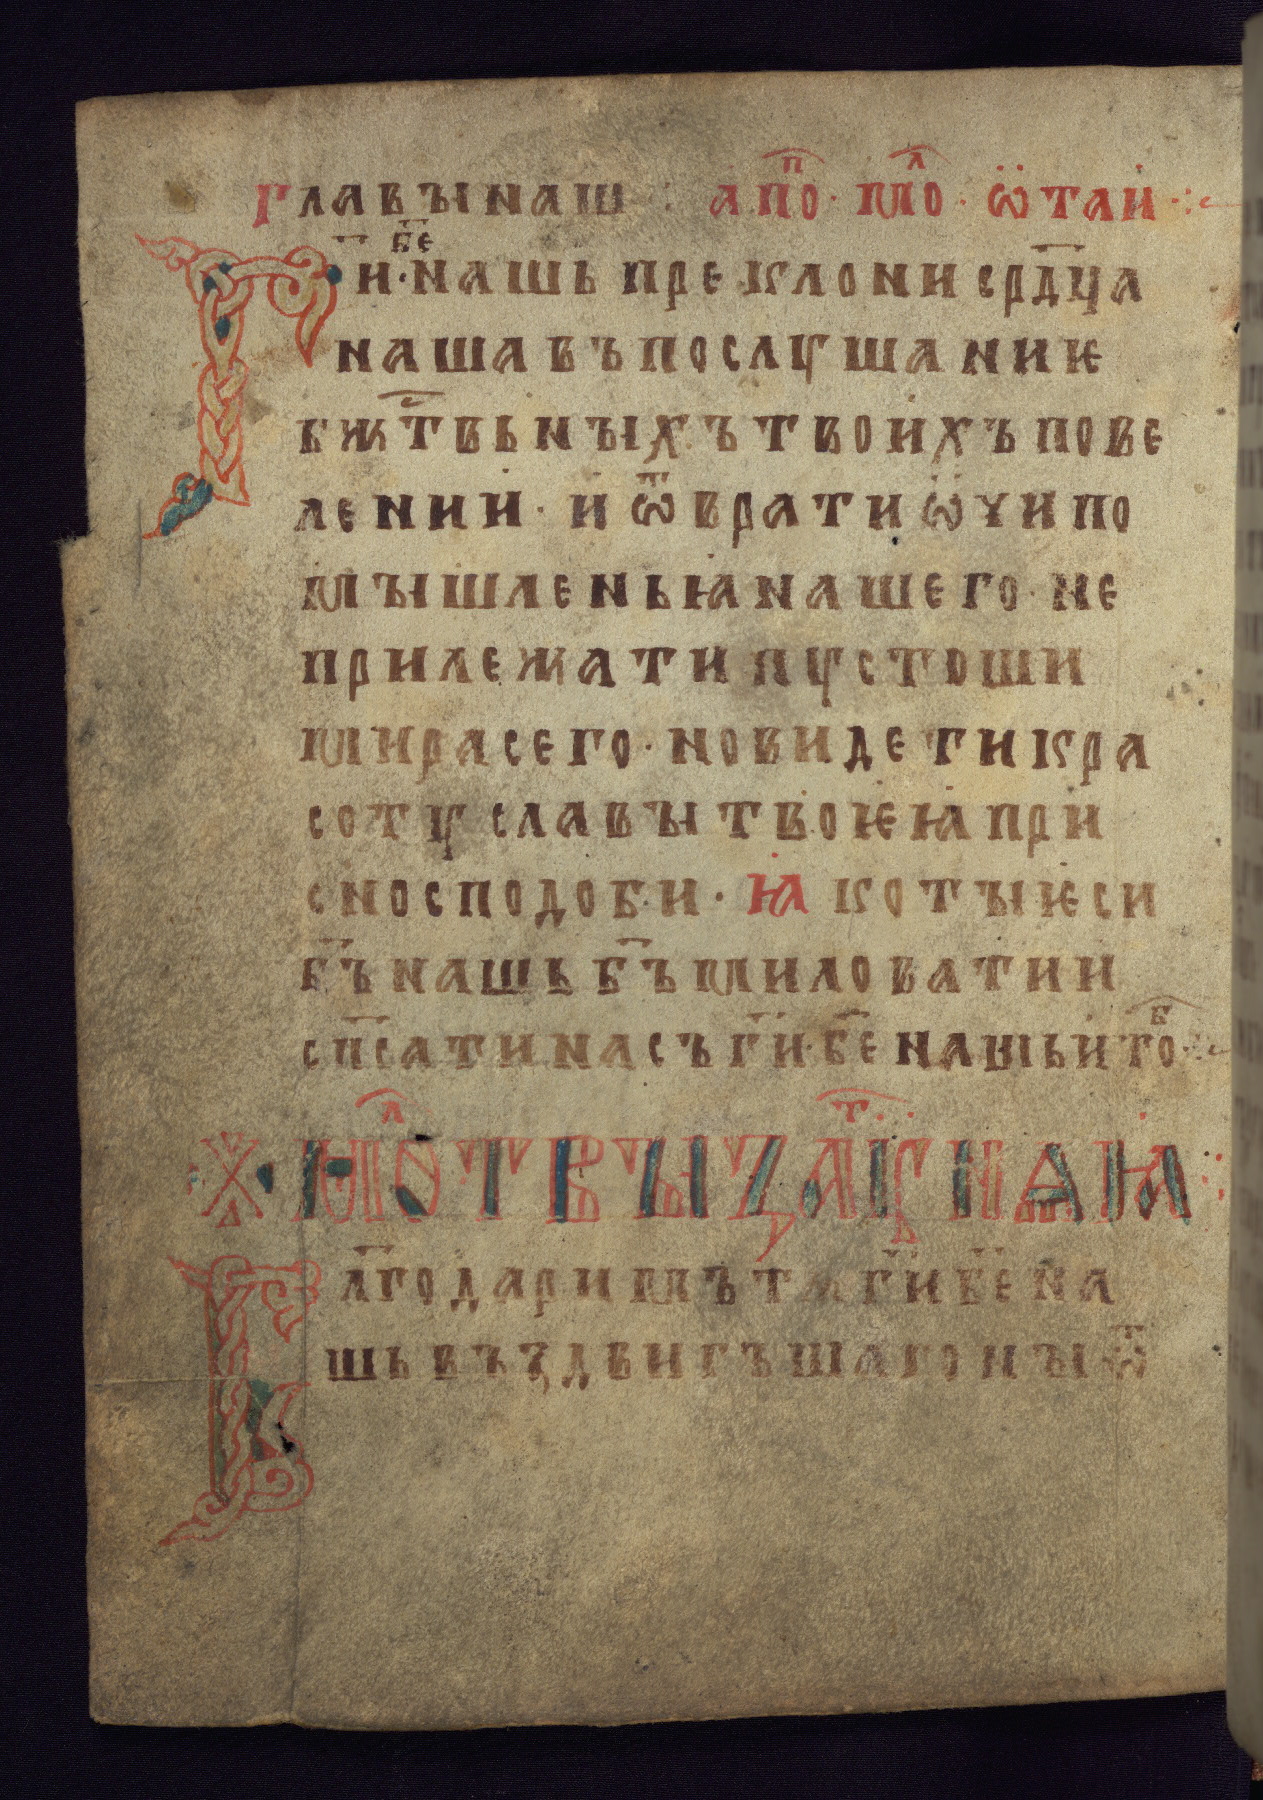 главꙑ наш : а п҃о · мл҃о · ѿ таи ·:
Г҃и · б҃е нашь преклони срд҃ца
наша въ послꙋшаниѥ
бжт҃вьнꙑхъ твоихъ пове
лении · и ѿврати ѡчи по
мꙑшленьꙗ нашего · не
прилежати пꙋстоши
мира сего · но видети кра
сотꙋ славꙑ твоѥꙗ при
сно сподоби · ꙗко тꙑ ѥси
б҃ъ нашь б҃ъ миловати и
сп҃сати насъ г҃и · б҃е нашь и т б о ·:
мл҃о т в꙼ъ з꙼ а т꙼
Бл҃годаримъ тѧ г҃и б҃е на
шь въздвигъшаго нꙑ ѿ